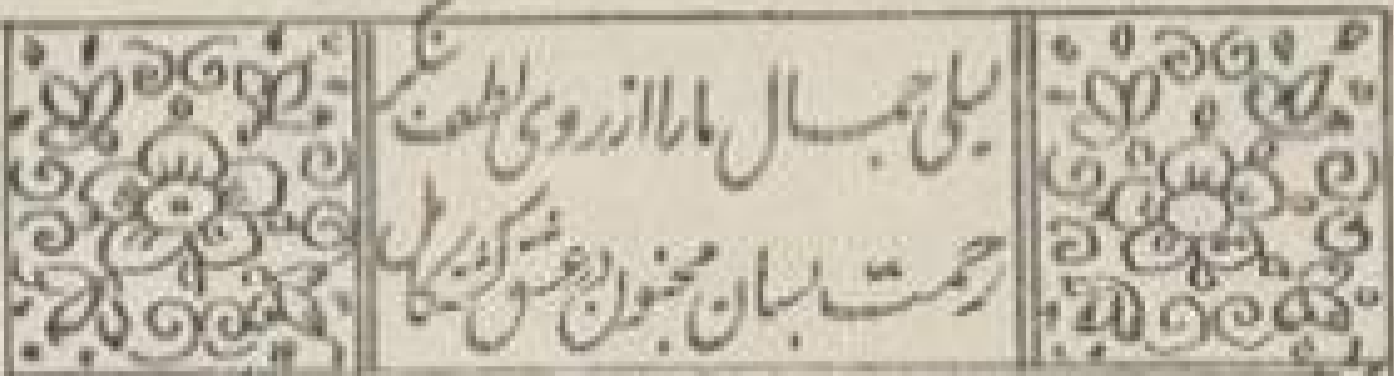 لیلی جمال ما را از روی لطف بنگر
رحمت بسان مجنون در عشق گشته کامل